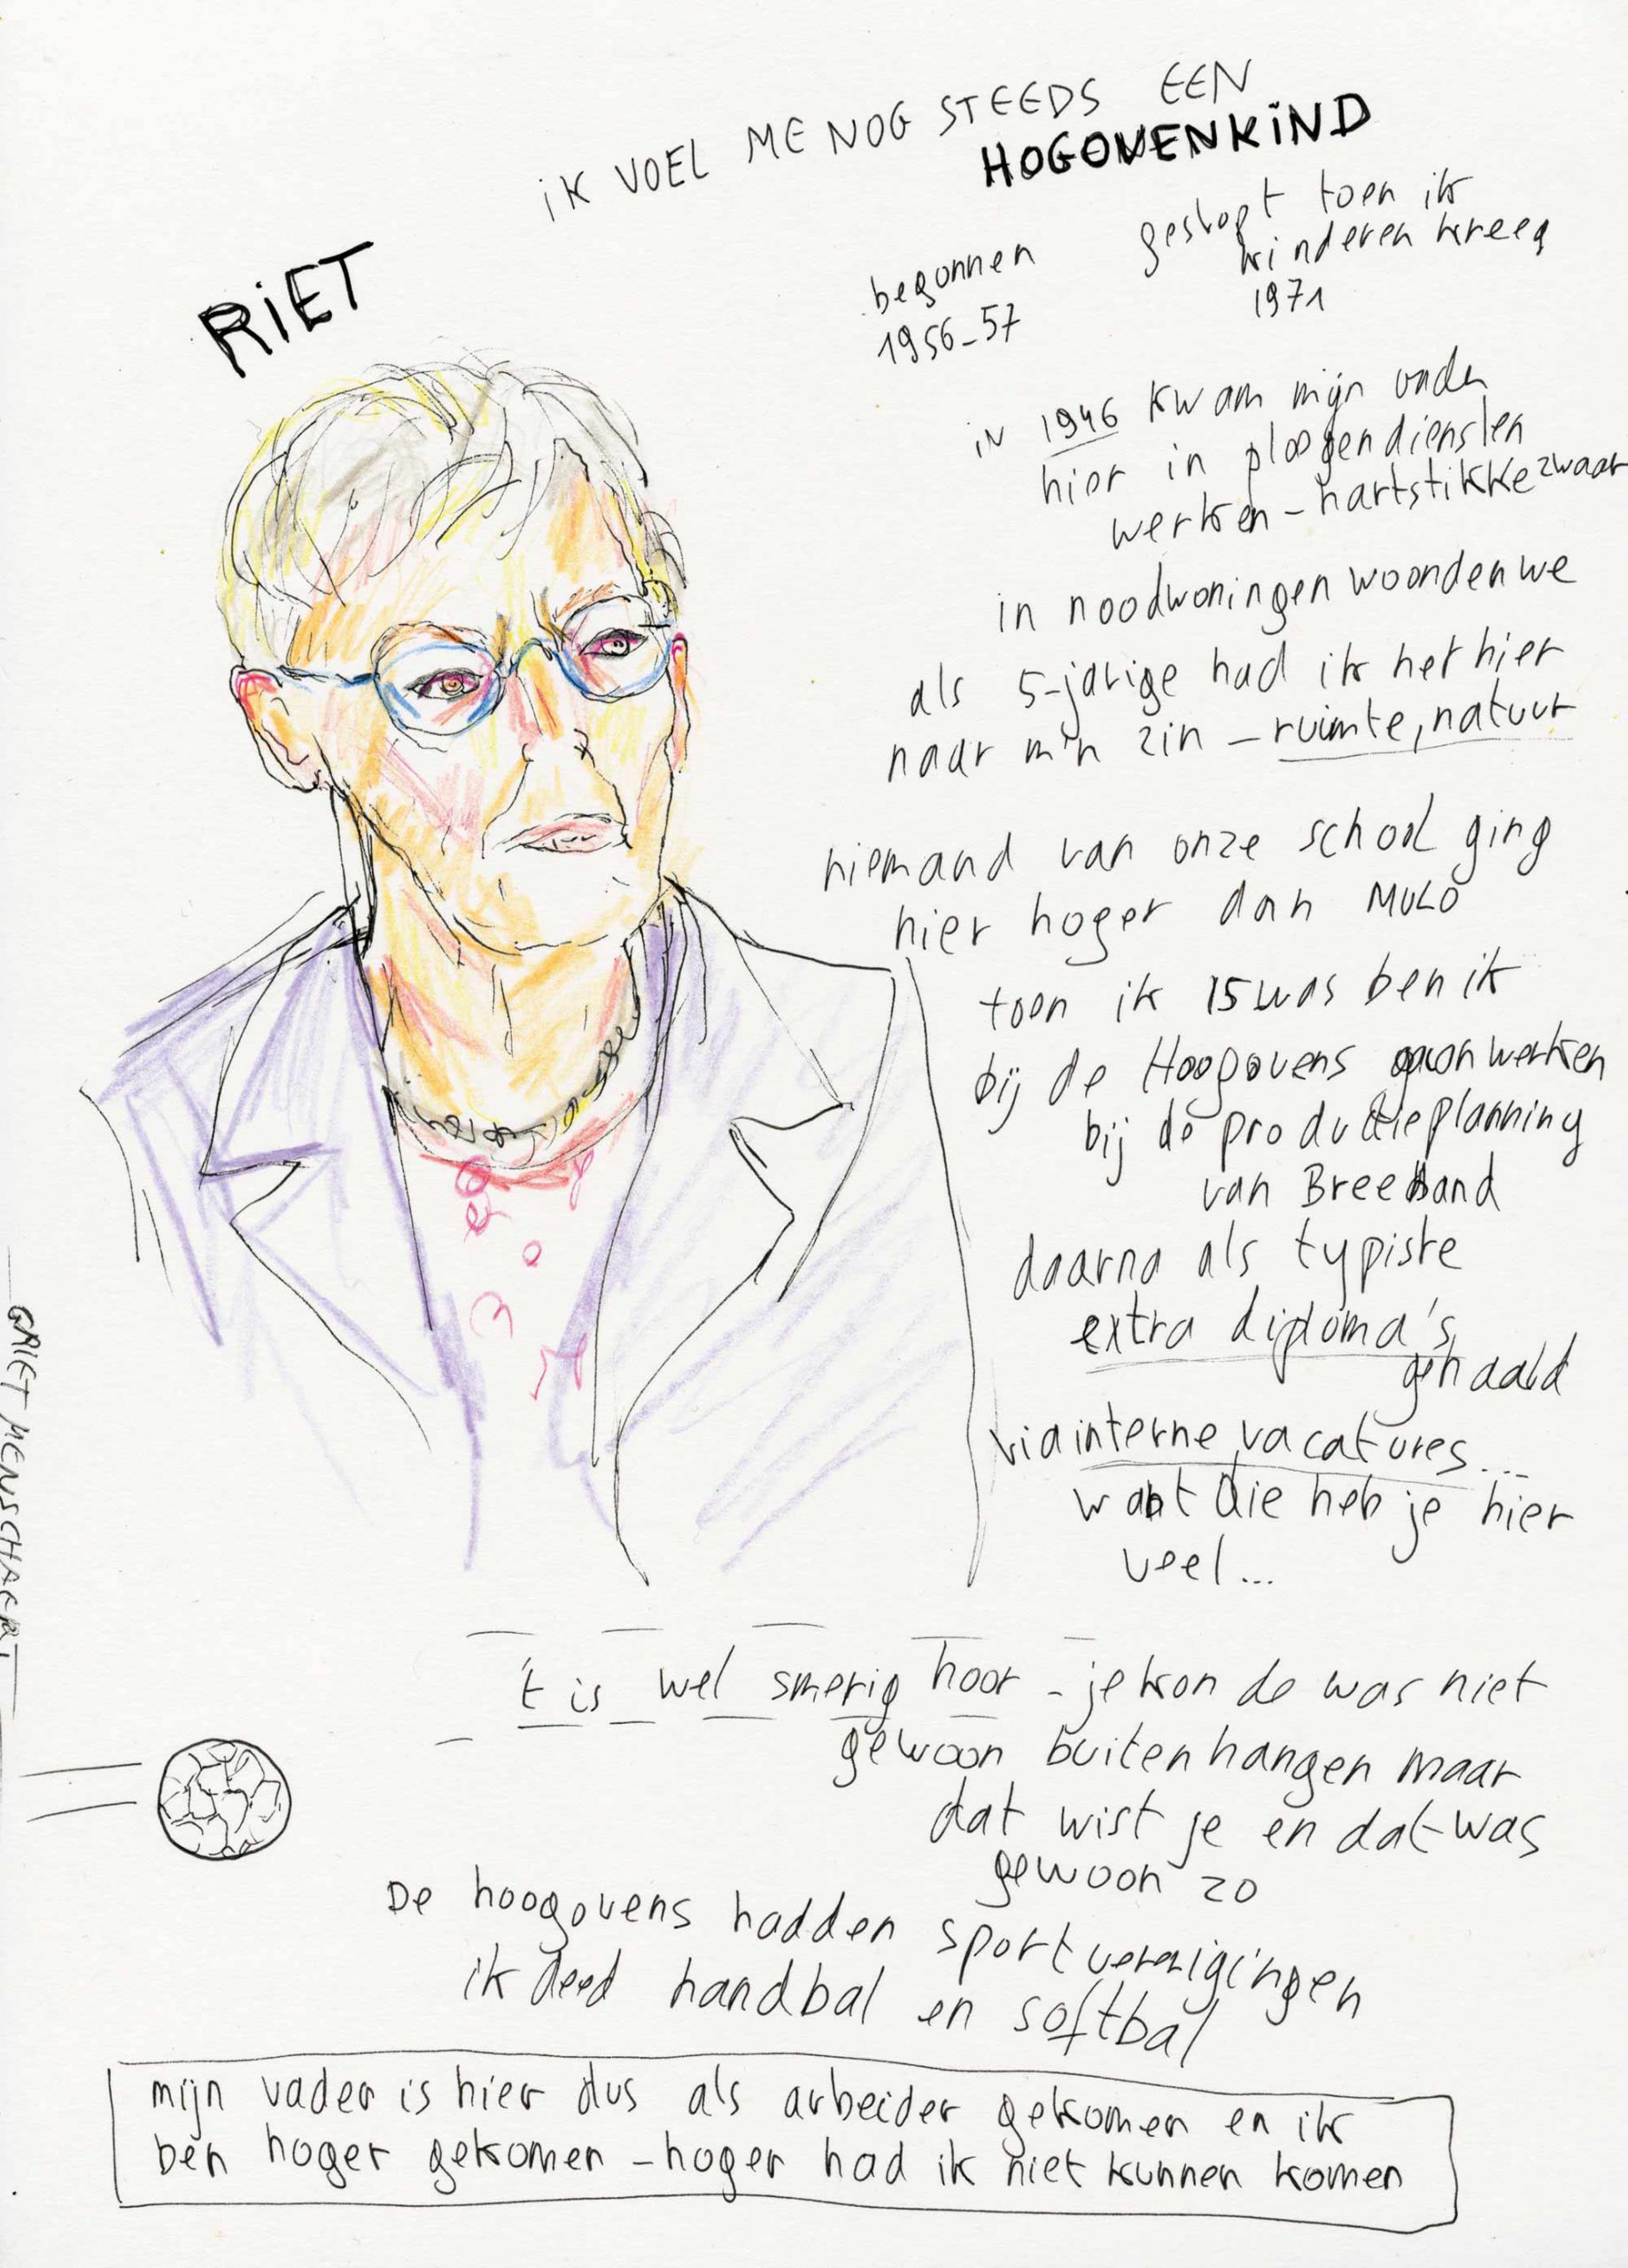 iK VOEL ME NOG STEEDS EEN
HOGOVENKiND
RiET
begonnen
1956-57
gestopt toen ik
kinderen kreeg
1971
iN 1946 kwam mijn vader
hier in ploegendiensten
werken - hartstikke zwaar
in noodwoningen woonden we
als 5-jarige had ik het hier
naar m'n zin - ruimte, natuur
niemand van onze school ging
hier hoger dan MULO
toen ik 15 was ben ik
bij de Hoogovens gaan werken
bij de productieplanning
van Breedband
daarna als typiste
extra diploma's
gehaald
via interne vacatures...
want die heb je hier
veel...
't is wel smerig hoor - je kon de was niet
gewoon buiten hangen maar
dat wist je en dat was
gewoon zo
De hoogovens hadden sportverenigingen
ik deed handbal en softbal
mijn vader is hier dus als arbeider gekomen en ik
ben hoger gekomen - hoger had ik niet kunnen komen
GRIET MENSCHAERT